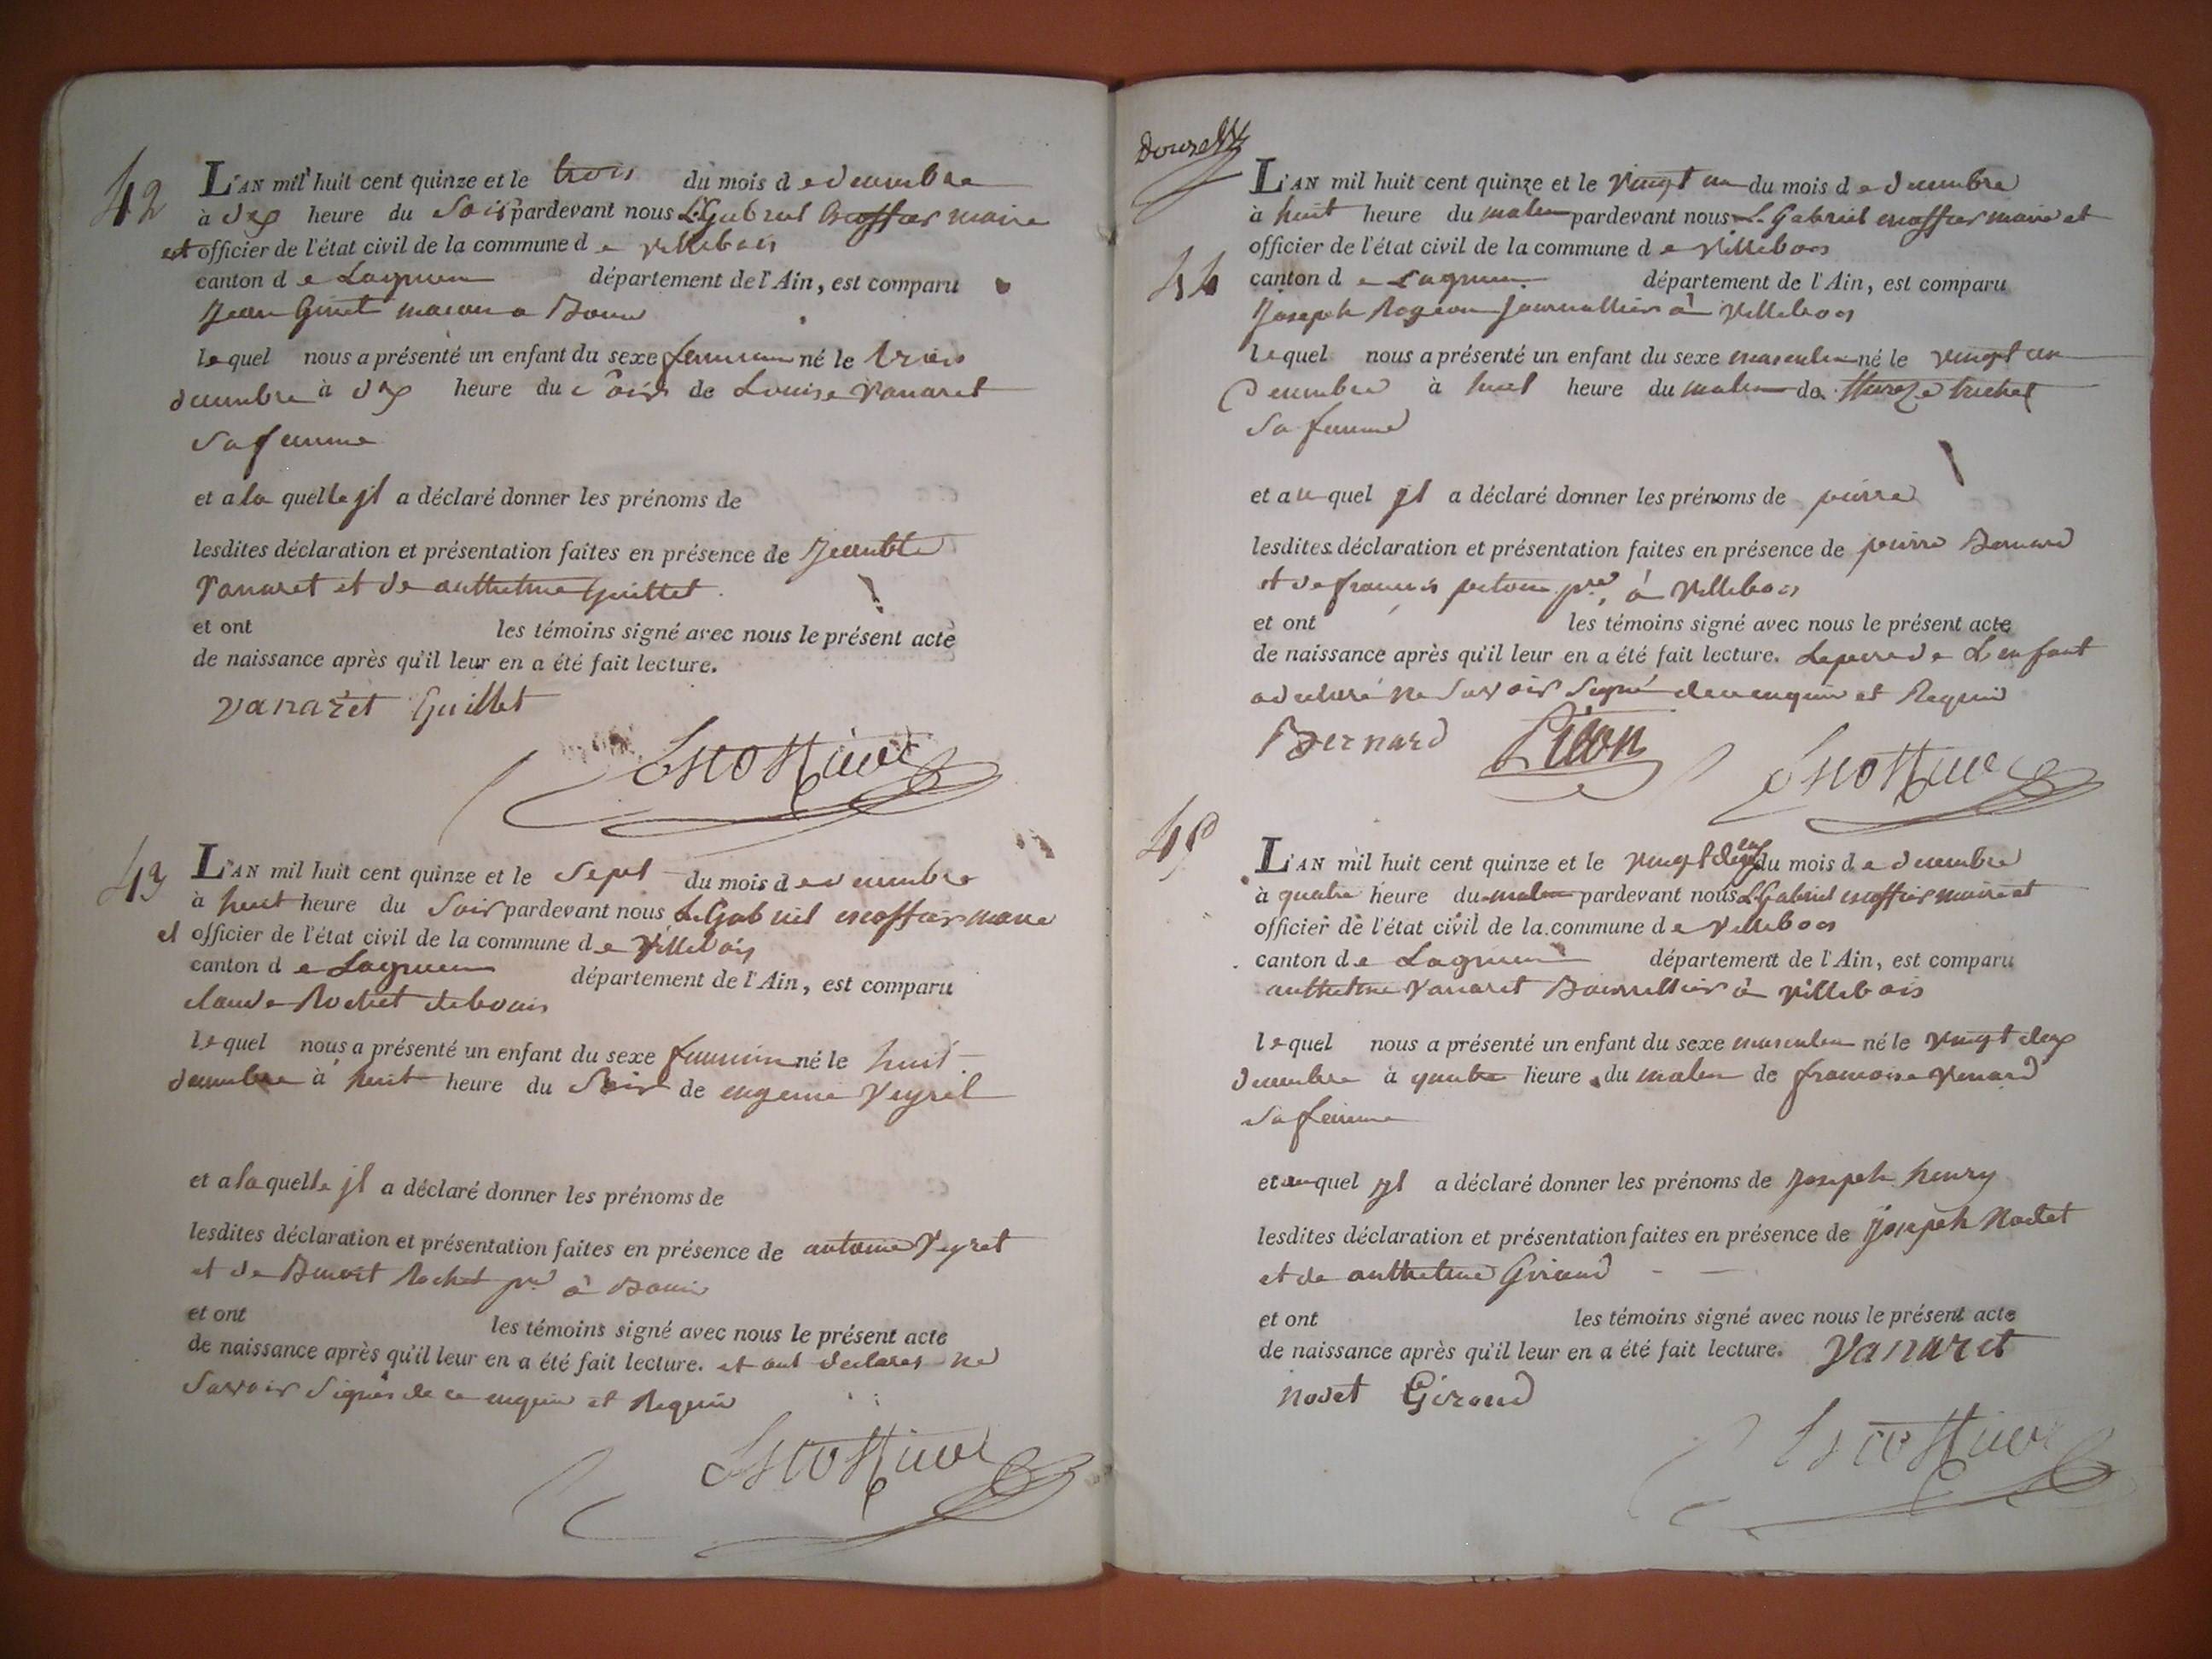 42
L'AN mil huit cent quinze et le trois du mois de decembre
à dix heure du soir pardevant nous L. Gabriel Escoffier maire
et officier de l'état civil de la commune de villebois
canton de Lagnieu département de l'Ain, est comparu
Jean Ginet macon a
lequel nous a présenté un enfant du sexe feminin né le trois
decembre à dix heure du soir de Louise Vanaret
sa femme
et a la quelle jl a déclaré donner les prénoms de
lesdites déclaration et présentation faites en présence de
Vanaret et de anthelme Guillet
et ont les témoins signé avec nous le présent acte
de naissance après qu'il leur en a été fait lecture.
vanaret Guillet
Escoffier
43
L'AN mil huit cent quinze et le sept du mois de decembre
à huit heure du soir pardevant nous L. Gabriel escoffier maire
et officier de l'état civil de la commune de villebois
canton de Lagnieu département de l'Ain, est comparu
claude Rochet
lequel nous a présenté un enfant du sexe feminin né le huit
decembre à huit heure du soir de eugenie Veyret
et a la quelle jl a déclaré donner les prénoms de
lesdites déclaration et présentation faites en présence de antoine Veyret
et de Benoit Rochet pre à
et ont les témoins signé avec nous le présent acte
de naissance après qu'il leur en a été fait lecture. et ont declares ne
savoir signés de ce enquis et Requis
Escoffier
44
L'AN mil huit cent quinze et le vingt un du mois de decembre
à huit heure du matin pardevant nous L. Gabriel escoffier maire et
officier de l'état civil de la commune de Villebois
canton de Lagnieu département de l'Ain, est comparu
Joseph journallier à Villebois
lequel nous a présenté un enfant du sexe masculin né le vingt un
Decembre à huit heure du matin de trichet
sa femme
et au quel jl a déclaré donner les prénoms de pierre
lesdites déclaration et présentation faites en présence de pierre Bernard
et de francois piton pre, à Villebois
et ont les témoins signé avec nous le présent acte
de naissance après qu'il leur en a été fait lecture. Le pere de L enfant
a declaré ne savoir signé de ce enquis et Requis
Bernard Piton Escoffier
45
L'AN mil huit cent quinze et le vingt deux du mois de decembre
à quatre heure du matin pardevant nous L. Gabriel escoffier maire et
officier de l'état civil de la commune de villebois
canton de Lagnieu département de l'Ain, est comparu
anthelme Vanaret Bourrellier à villebois
lequel nous a présenté un enfant du sexe masculin né le vingt deux
decembre à quatre heure du matin de francoise
sa femme
et au quel jl a déclaré donner les prénoms de Joseph henry
lesdites déclaration et présentation faites en présence de Joseph Nodet
et de anthelme Giroud
et ont les témoins signé avec nous le présent acte
de naissance après qu'il leur en a été fait lecture. Vanaret
nodet Giroud
Escoffier